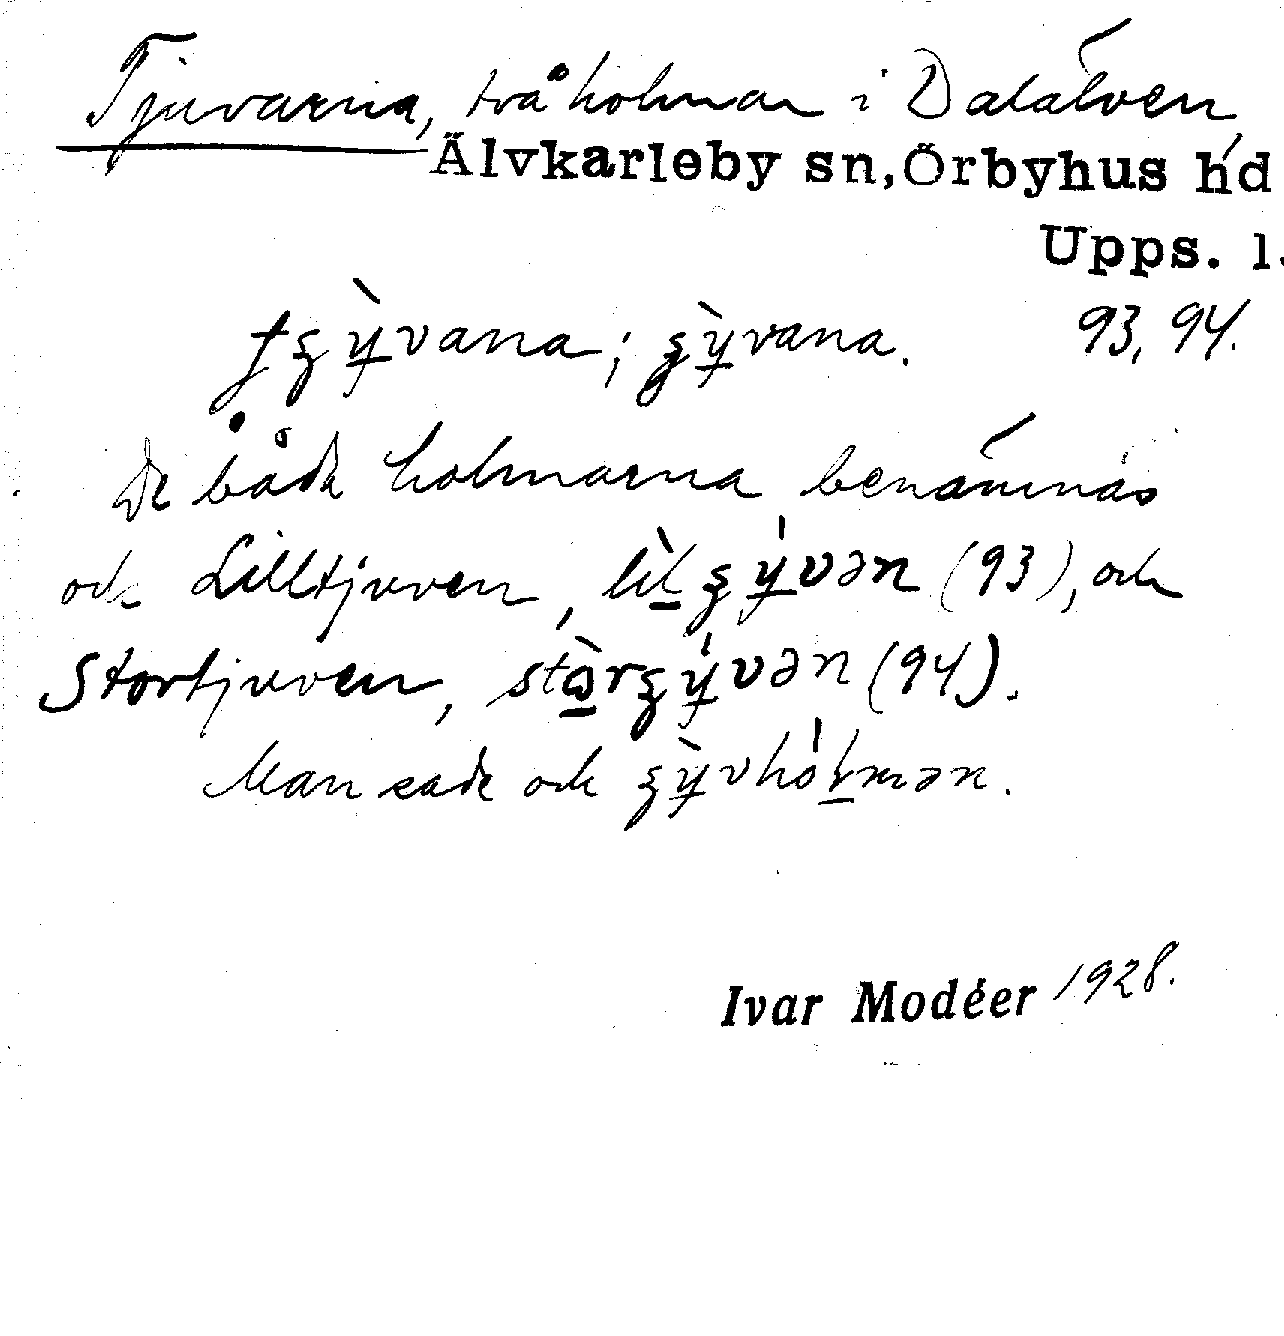 Tjuvarna, två holmar i Dalälven,
Älvkarleby sn, Örbyhus hd
Upps. l.
93, 94.
De båda holmarna benämnas
och Lilltjuven, (93), och
Stortjuven, (94).
Man sade och
Ivar Modéer 1928.